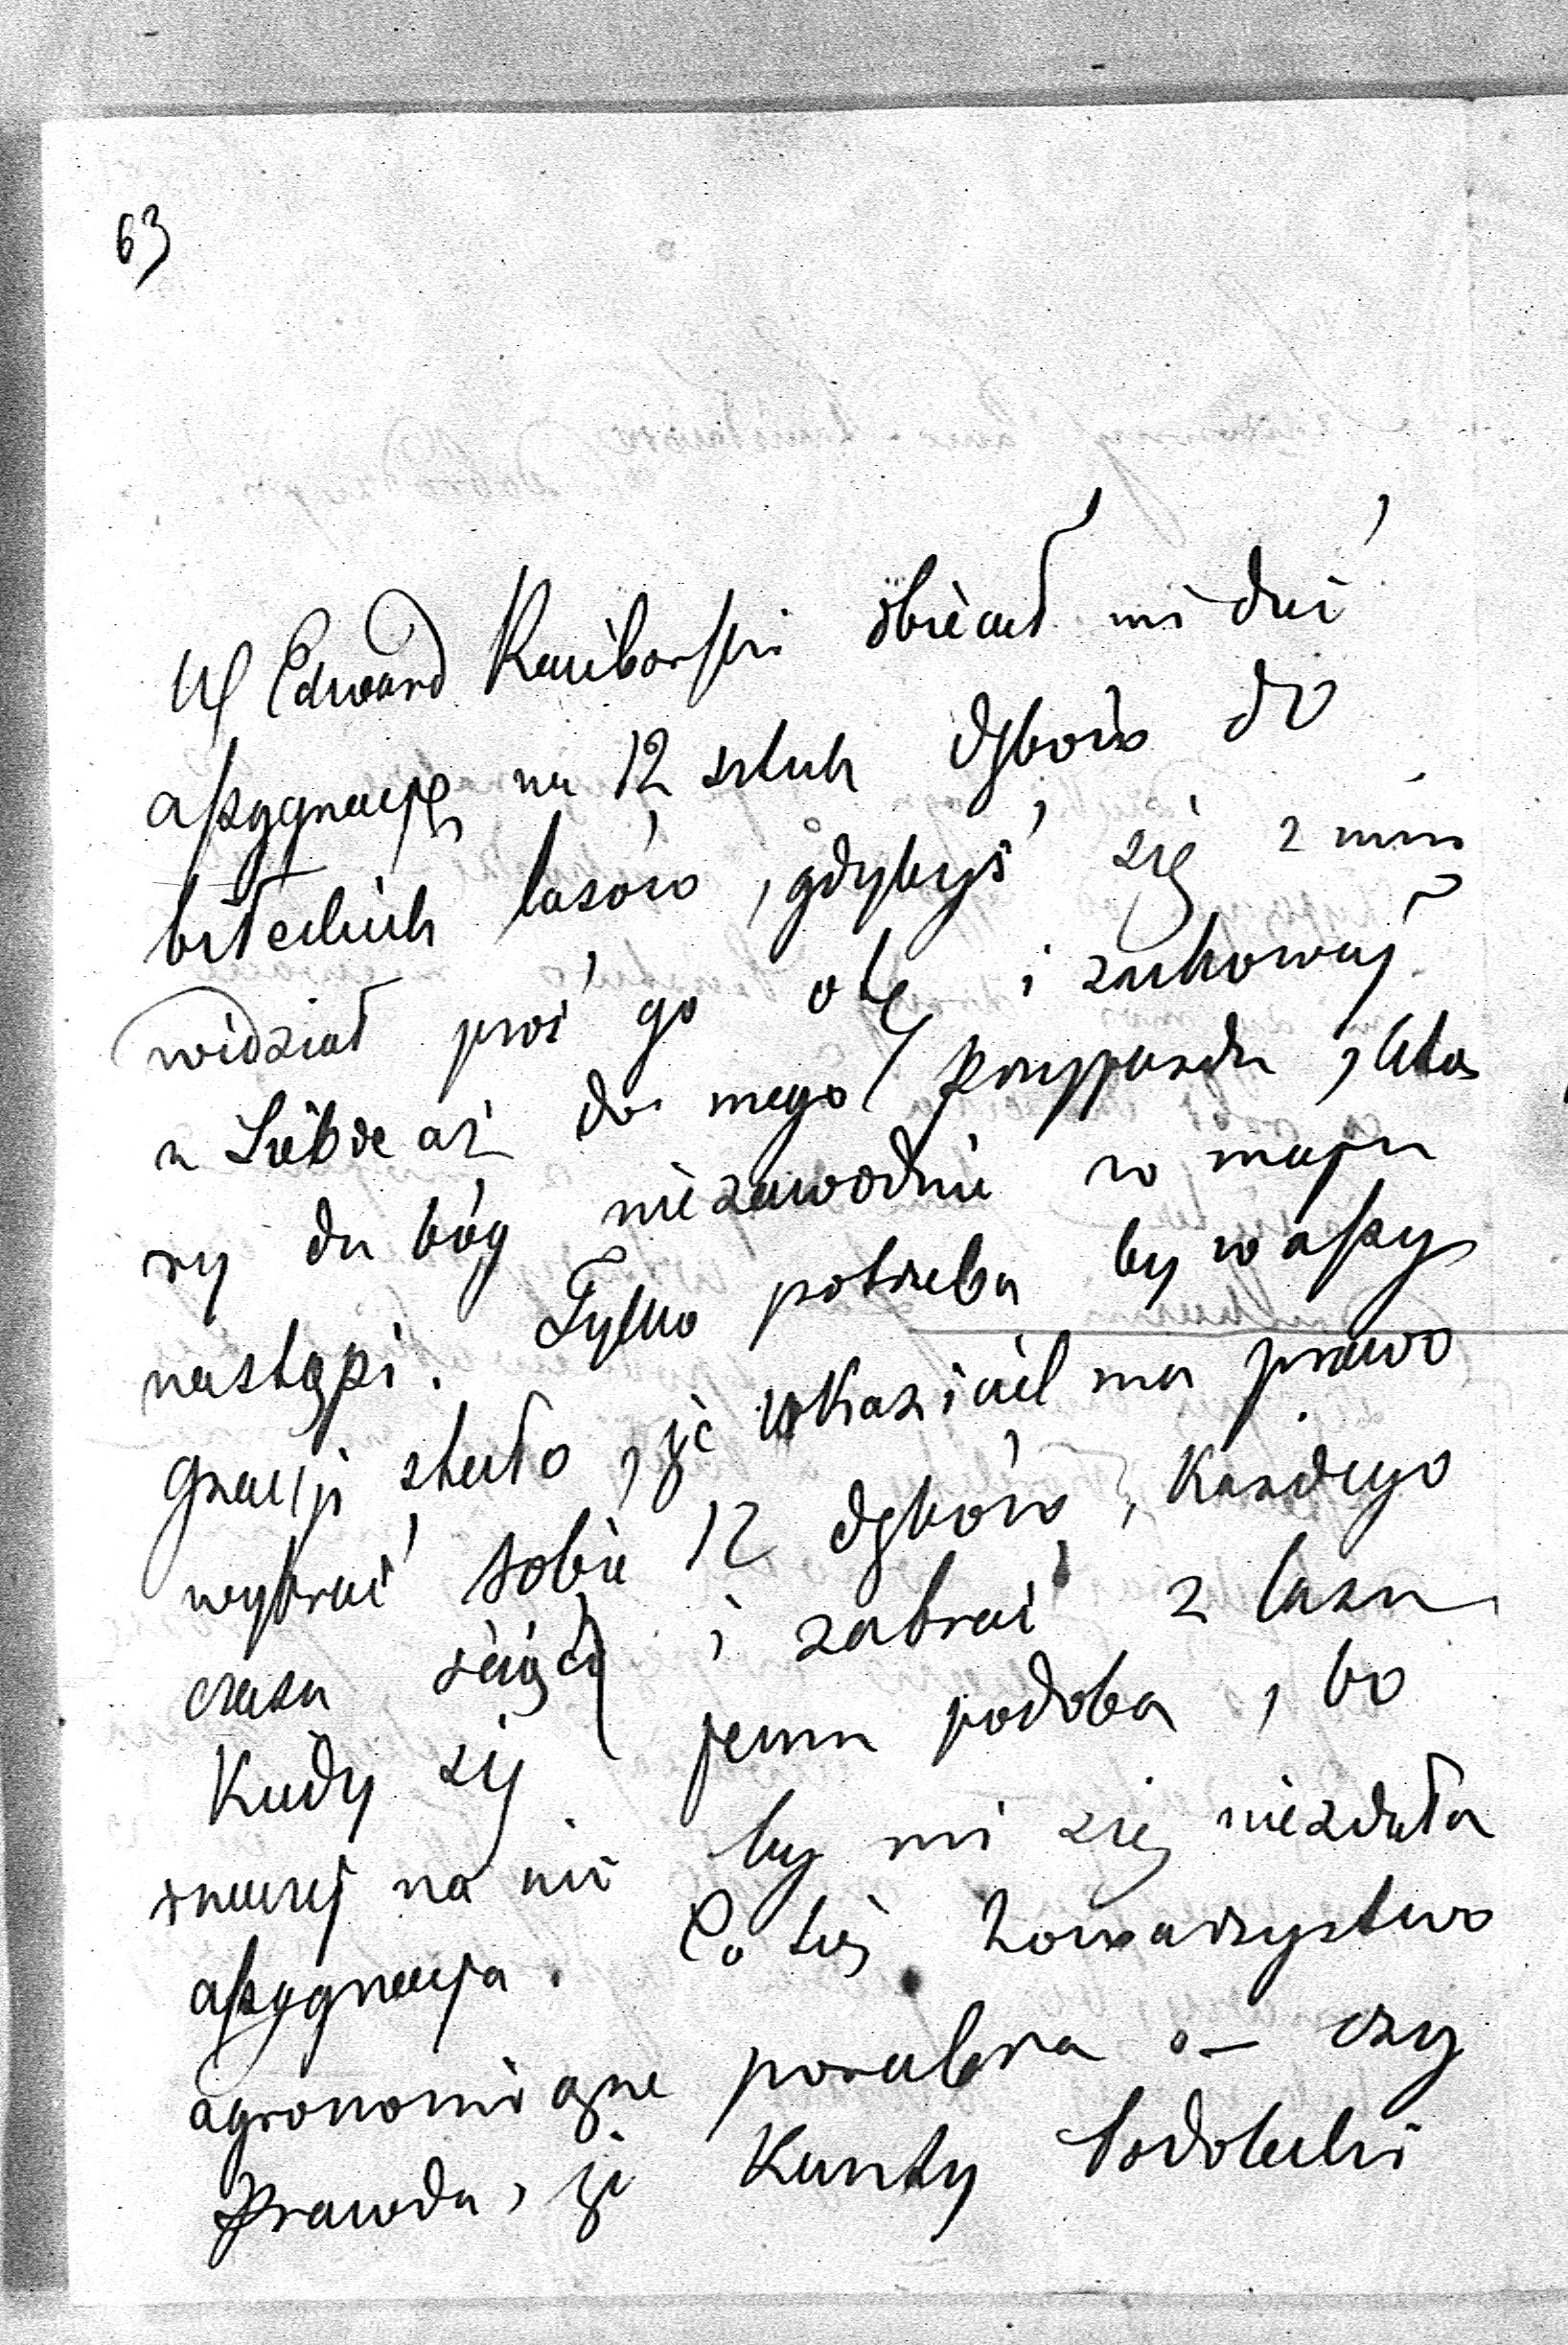 63
Edward Raciborski obiecał mi dać
assygnacyę na 12 sztuk dębów do
bełeckich lasów, gdybyś się z nim
widział proś go o tę i zachowaj
u Siebie aż do mego przyjazdu, któ
ry da bóg niezawodnie w maju
nastąpi. Tylko potrzeba by w assy
gnacji stało, że ukaziciel ma prawo
wybrać sobie 12 dębów, każdego
czasu ściąć i zabrać z lasu
kiedy się jemu podoba, bo
inaczej na nic by mi się niezdała
assygnacja. Co też towarzystwo
agronomiczne porabia – czy
prawda, że Kunty